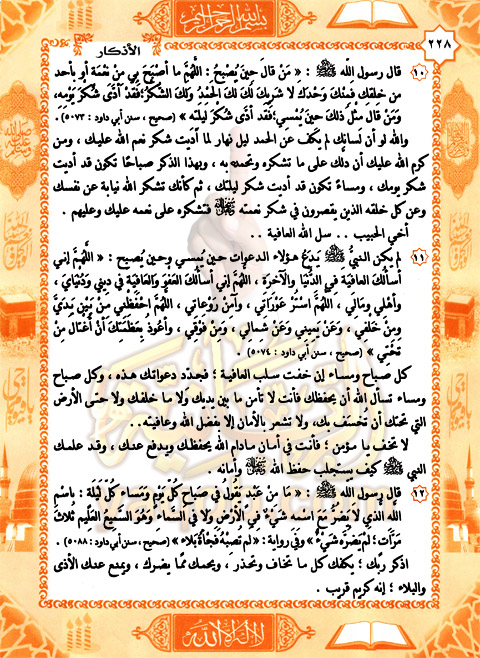 بسم الله الرحمن الرحيم
٢٢٨
الأذكار
١٠ قال رسول الله ﷺ : « مَنْ قَالَ حِينَ يُصْبِحُ : اللَّهُمَّ مَا أَصْبَحَ بِي مِنْ نِعْمَةٍ أَو بِأَحَدٍ
مِن خَلقِكَ فَمِنْكَ وَحْدَكَ لا شَرِيكَ لَكَ لَكَ الحَمْدُ وَلَكَ الشُّكْرُ؛ فَقَدْ أَدَّى شُكْرَ يَومِهِ،
وَمَنْ قَالَ مِثْلَ ذَلِكَ حِينَ يُمْسِي؛ فَقَد أَدَّى شُكْرَ لَيلَتِهِ » (صحيح ، سنن أبي داود : ٥٠٧٣) .
والله لو أن لسانك لم يكف عن الحمد ليل نهار لما أديت شكر نعم الله عليك ، ومن
كرم الله عليك أن دلك على ما تشكره وتحمده به ، وبهذا الذكر صباحًا تكون قد أديت
شكر يومك ، ومساءً تكون قد أديت شكر ليلتك ، ثم كأنك تشكر الله نيابة عن نفسك
وعن كل خلقه الذين يقصرون في شكر نعمته ﷻ فتشكره على نعمه عليك وعليهم .
أخي الحبيب .. سل الله العافية ..
١١ لم يكن النبيُّ ﷺ يَدَعُ هؤلاء الدعوات حين يُمسي وحين يصبح : « اللَّهُمَّ إني
أسألُكَ العافيةَ في الدُّنيَا والآخرَة ، اللَّهُمَّ إني أسألُكَ العَفوَ والعَافيةَ في ديني ودُنْيَايَ ،
وأهْلي ومَالي ، اللَّهُمَّ اسْتُرْ عَوْرَاتي ، وآمِنْ رَوْعَاتي ، اللَّهُمَّ احْفَظْني مِنْ بَيْنِ يَدَيَّ
ومِنْ خَلْفي ، وعَنْ يَميني وعَنْ شِمَالي ، ومِنْ فَوْقي ، وأعُوذُ بِعَظَمَتِكَ أنْ أُغْتَالَ مِنْ
تَحْتي » (صحيح ، سنن أبي داود : ٥٠٧٤) .
كل صباح ومساء إن خفت سلب العافية ؛ فجدّد دعواتك هذه ، وكل صباح
ومساء تسأل الله أن يحفظك فأنت لا تأمن ما بين يديك ولا ما خلفك ولا حتى الأرض
التي تحتك أن تُخسف بك، ولا تشعر بالأمان إلا بفضل الله وعافيته..
لا تخف يا مؤمن ؛ فأنت في أمان مادام الله يحفظك ويدفع عنك ، وقد علمك
النبي ﷺ كيف يستجلب حفظ الله ﷻ وأمانه .
١٢ قال رسول الله ﷺ : « مَا مِنْ عَبْدٍ يَقُولُ في صَبَاحِ كُلِّ يَومٍ وَمَسَاءِ كُلِّ لَيلَةٍ : باسْمِ
اللَّهِ الَّذي لا يَضُرُّ مَعَ اسْمِهِ شَيْءٌ في الأرْضِ وَلا في السَّمَاءِ وَهُوَ السَّمِيعُ العَلِيم ثَلاثَ
مَرَّات ؛ لَمْ يَضرَّه شَيْءٌ » وفي رواية: « لَم تُصِبْهُ فَجْأَةُ بَلاءٍ » (صحيح ، سنن أبي داود : ٥٠٨٨) .
اذكر ربك ؛ يكفك كل ما تخاف وتحذر ، ويحمك مما يضرك ، ويمنع عنك الأذى
والبلاء ؛ إنه كريم قريب .
لا إله إلا الله